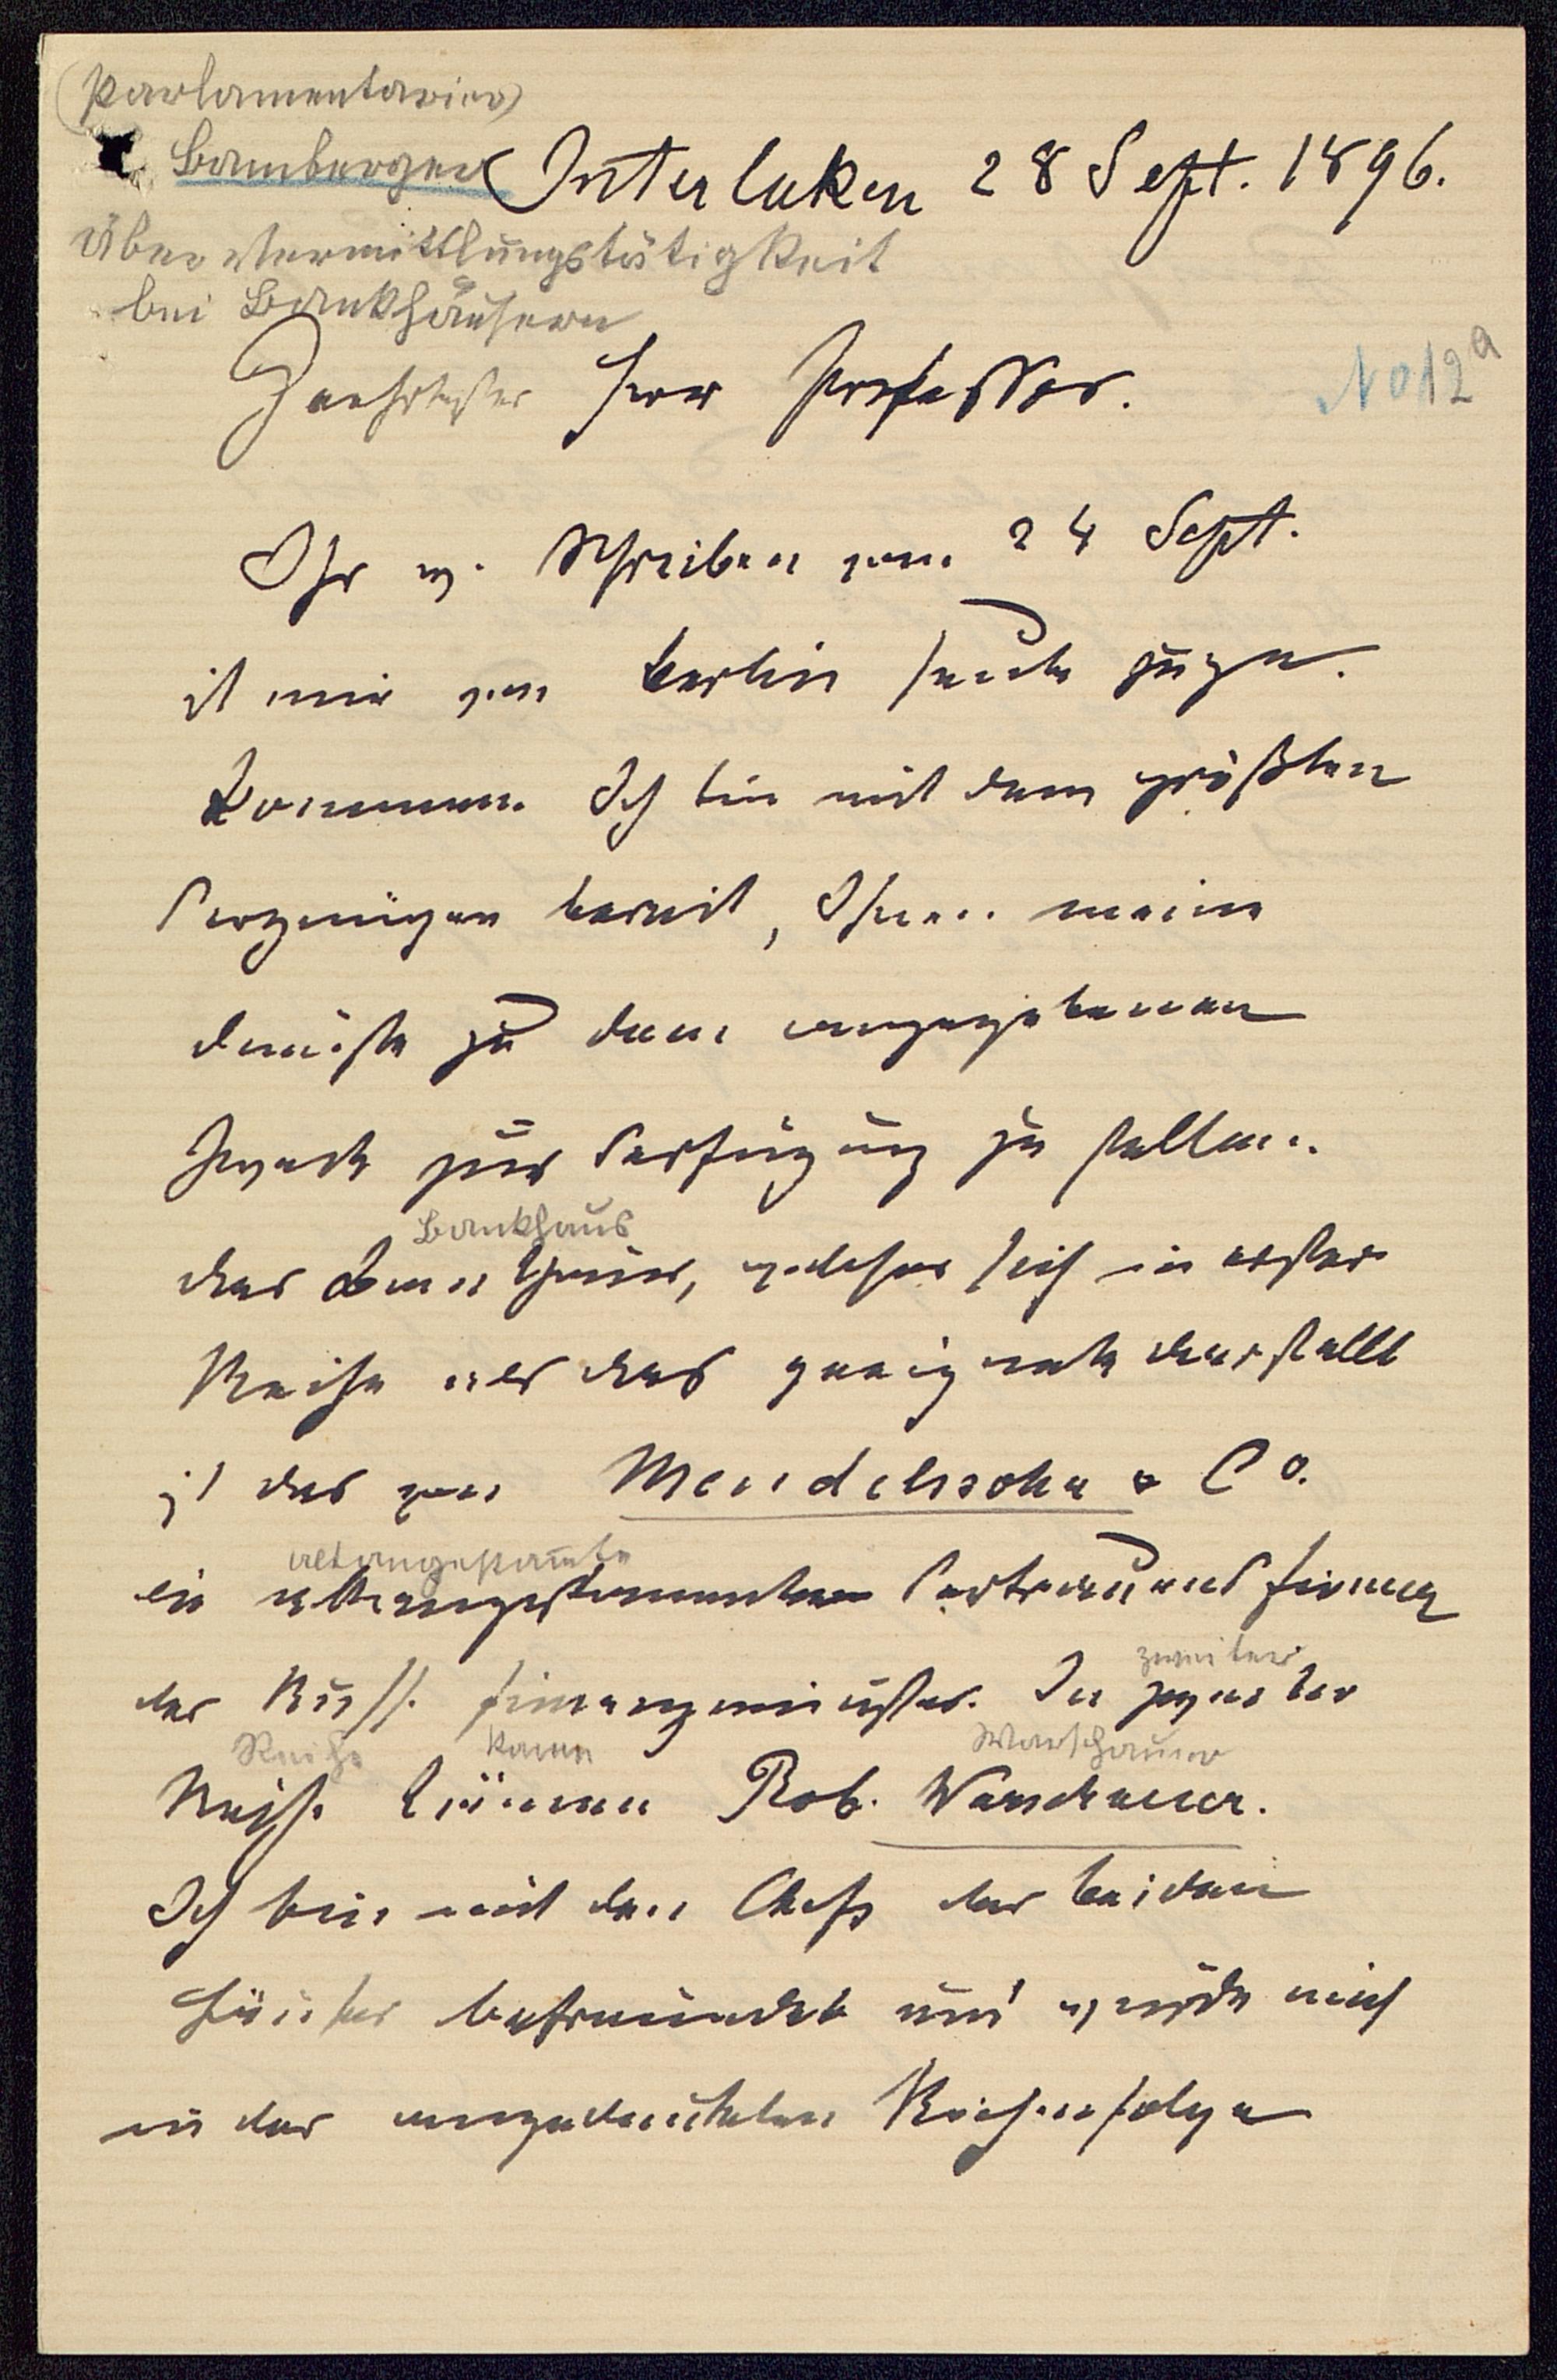 (Parlamentarier)
Bamberger
Interlaken 28 Sept. 1896.
über Vermittlungstätigkeit
bei Bankhäusern
Geehrtester Herr Professor.
No 12a
Ihr w. Schreiben vom 24 Sept.
ist mir von Berlin heute zuge-
kommen. Ich bin mit dem größten
Vergnügen bereit, Ihnen meine
Dienste zu dem angegebenen
Zweck zur Verfügung zu stellen.
Bankhaus
Das Bankhaus, welches sich in erster
Reihe als das geeignete darstellt
ist das von Mendelssohn & Co.
altangestammte
die altangestammte Vertrauensfirma
der Russ. Finanzminister. In zweiter
zweiter
Reihe kann Warschauer
Reihe käme Rob. Warschauer.
Ich bin mit den Chefs der beiden
Häuser befreundet und würde mich
in der angedeuteten Reihenfolge